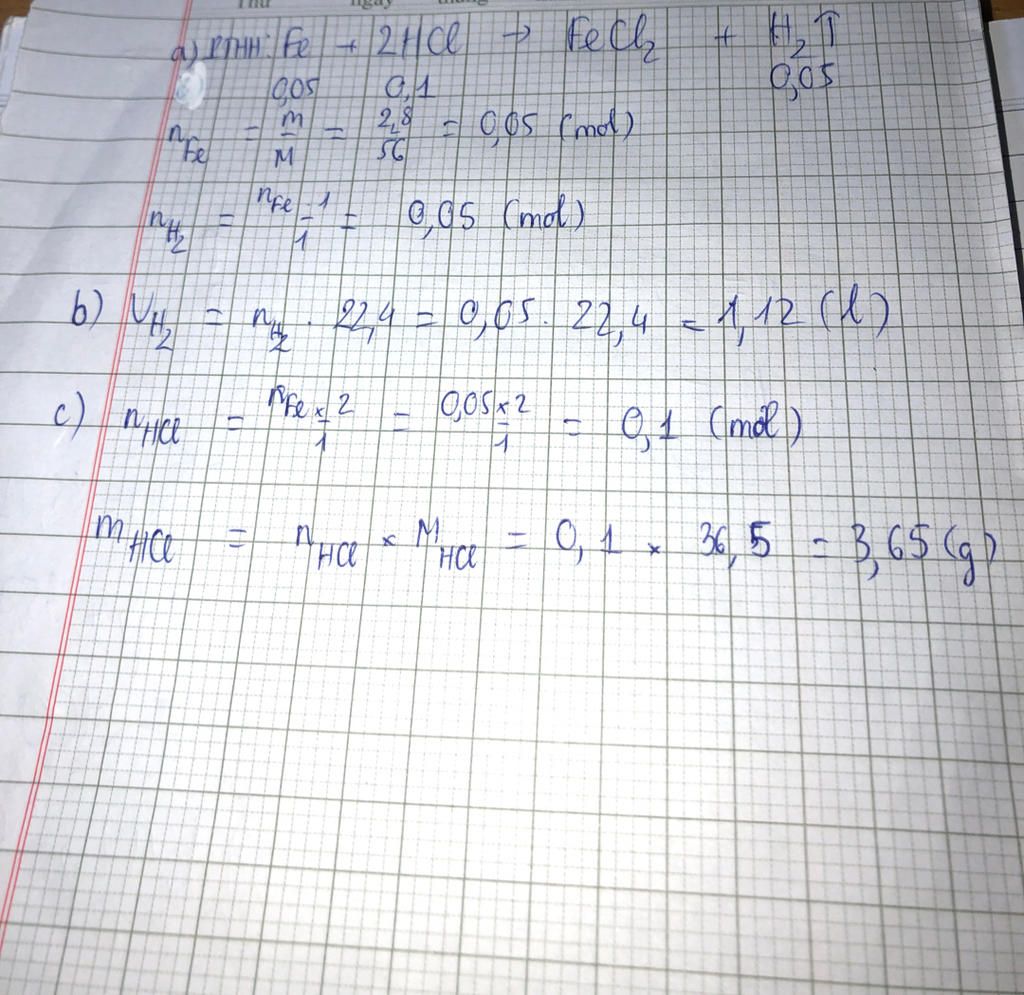 Thứ ngày tháng
a) PTHH: Fe + 2HCl → FeCl₂ + H₂↑
0,05 0,1 0,05
n_Fe = m/M = 2,8/56 = 0,05 (mol)
n_H₂ = n_Fe · 1/1 = 0,05 (mol)
b) V_H₂ = n_H₂ . 22,4 = 0,05 . 22,4 = 1,12 (l)
c) n_HCl = n_Fe × 2/1 = 0,05 × 2/1 = 0,1 (mol)
m_HCl = n_HCl × M_HCl = 0,1 × 36,5 = 3,65 (g)